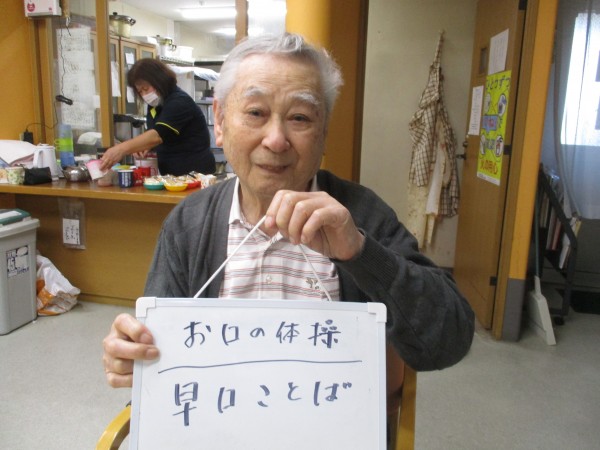 お口の体操
早口ことば